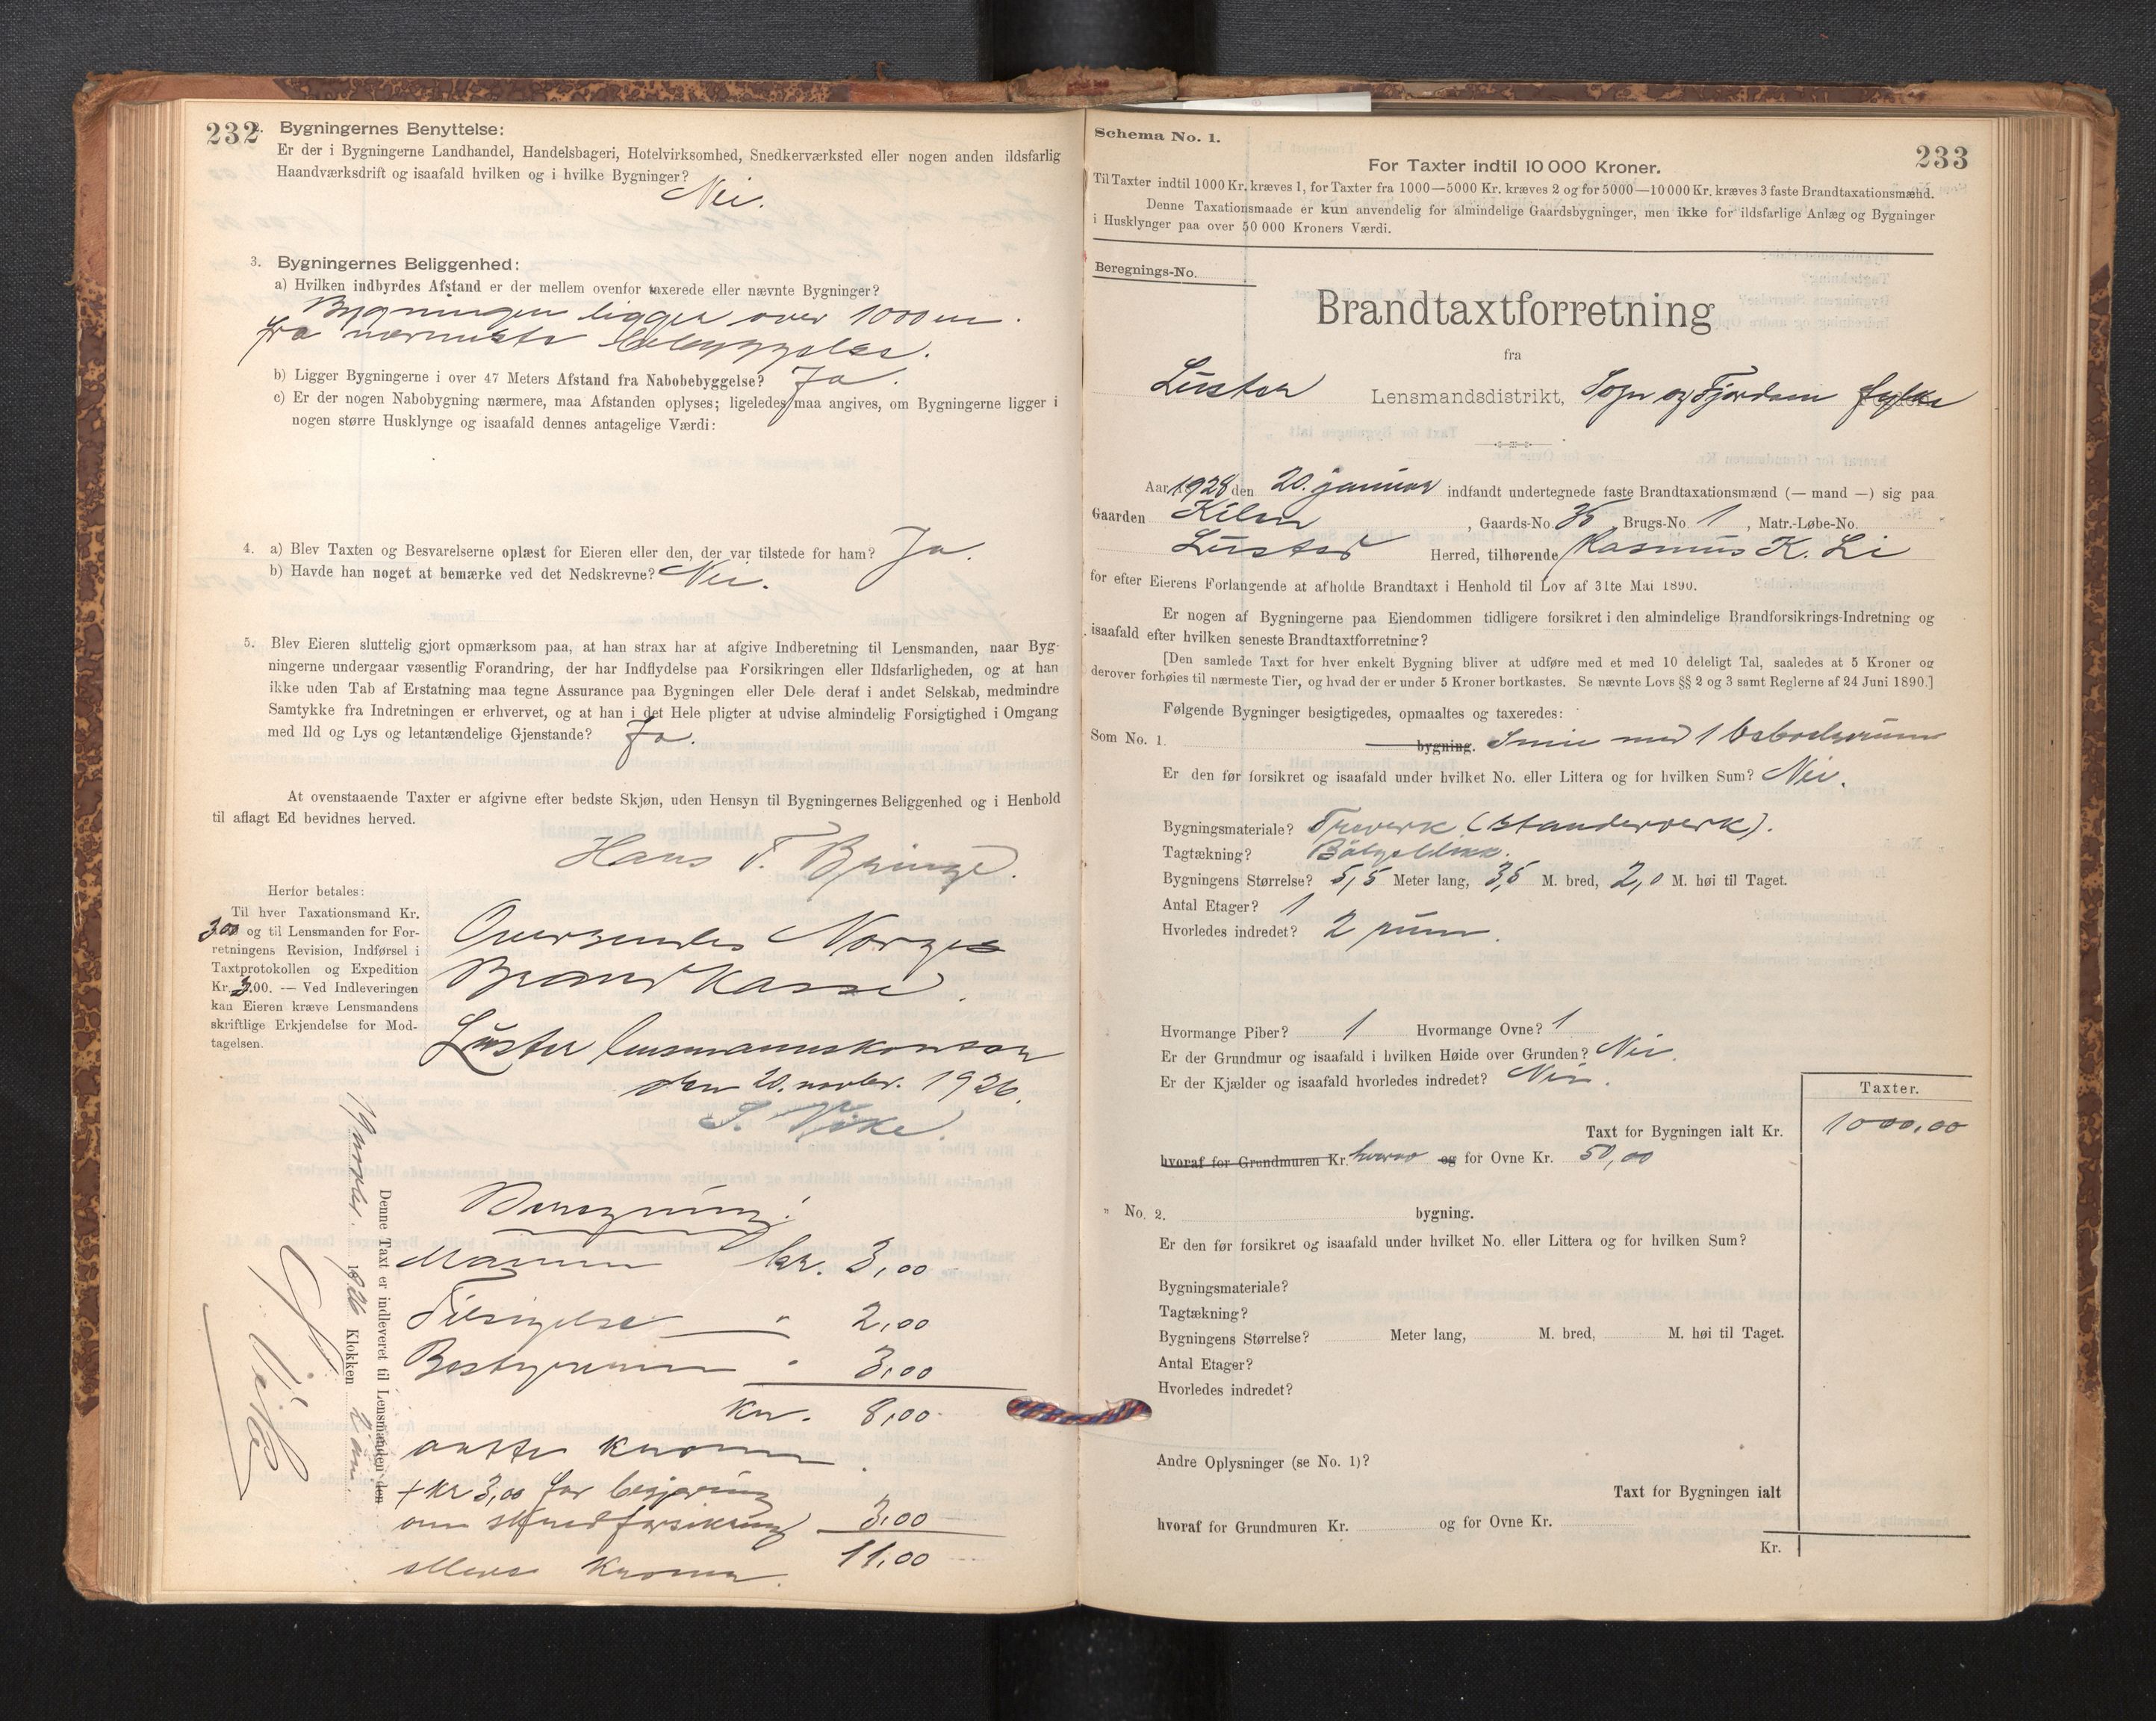 232
2. Bygningernes Benyttelse:
Er der i Bygningerne Landhandel, Handelsbageri, Hotelvirksomhed, Snedkerværksted eller nogen anden ildsfarlig
Haandværksdrift og isaafald hvilken og i hvilke Bygninger?
Nei.
3. Bygningernes Beliggenhed:
a) Hvilken indbyrdes Afstand er der mellem ovenfor taxerede eller nævnte Bygninger?
Bygningen ligger over 1000 m.
fra nærmeste bebyggelse.
b) Ligger Bygningerne i over 47 Meters Afstand fra Nabobebyggelse? Ja.
c) Er der nogen Nabobygning nærmere, maa Afstanden oplyses; ligeledes maa angives, om Bygningerne ligger i
nogen større Husklynge og isaafald dennes antagelige Værdi:
4. a) Blev Taxten og Besvarelserne oplæst for Eieren eller den, der var tilstede for ham? Ja.
b) Havde han noget at bemærke ved det Nedskrevne? Nei.
5. Blev Eieren sluttelig gjort opmærksom paa, at han strax har at afgive Indberetning til Lensmanden, naar Byg-
ningerne undergaar væsentlig Forandring, der har Indflydelse paa Forsikringen eller Ildsfarligheden, og at han
ikke uden Tab af Erstatning maa tegne Assurance paa Bygningen eller Dele deraf i andet Selskab, medmindre
Samtykke fra Indretningen er erhvervet, og at han i det Hele pligter at udvise almindelig Forsigtighed i Omgang
med Ild og Lys og letantændelige Gjenstande? Ja.
At ovenstaaende Taxter er afgivne efter bedste Skjøn, uden Hensyn til Bygningernes Beliggenhed og i Henhold
til aflagt Ed bevidnes herved.
Hans T. Bringe.
Herfor betales:
Til hver Taxationsmand Kr.
3.00 og til Lensmanden for For-
retningens Revision, Indførsel i
Taxtprotokollen og Expedition
Kr. 3.00. — Ved Indleveringen
kan Eieren kræve Lensmandens
skriftlige Erkjendelse for Mod-
tagelsen.
Oversendes Norges
Brandkasse.
Luster lensmannskontor
den 20. novbr. 1926.
Denne Taxt er indleveret til Lensmanden den
19 novbr. 1926 Klokken
Beregning:
kr. 3,00
" 2,00
" 3,00
Kr. 8,00
aatte kroner.
+ kr 3,00 for begjæring
om skjønsforsikring 3.00
11,00
elleve kroner.
233
Schema No. 1.
For Taxter indtil 10 000 Kroner.
Til Taxter indtil 1000 Kr. kræves 1, for Taxter fra 1000—5000 Kr. kræves 2 og for 5000—10 000 Kr. kræves 3 faste Brandtaxationsmænd.
Denne Taxationsmaade er kun anvendelig for almindelige Gaardsbygninger, men ikke for ildsfarlige Anlæg og Bygninger
i Husklynger paa over 50 000 Kroners Værdi.
Beregnings-No.
Brandtaxtforretning
fra
Luster Lensmandsdistrikt, Sogn og Fjordane fylke
Aar 1928 den 20. januar indfandt undertegnede faste Brandtaxationsmænd (— mand —) sig paa
Gaarden Kilen, Gaards-No. 35 Brugs-No. 1, Matr.-Løbe-No.
Luster Herred, tilhørende Rasmus K. Li
for efter Eierens Forlangende at afholde Brandtaxt i Henhold til Lov af 31te Mai 1890.
Er nogen af Bygningerne paa Eiendommen tidligere forsikret i den almindelige Brandforsikrings-Indretning og
isaafald efter hvilken seneste Brandtaxtforretning?
[Den samlede Taxt for hver enkelt Bygning bliver at udføre med et med 10 deleligt Tal, saaledes at 5 Kroner og
derover forhøies til nærmeste Tier, og hvad der er under 5 Kroner bortkastes. Se nævnte Lovs §§ 2 og 3 samt Reglerne af 24 Juni 1890.]
Følgende Bygninger besigtigedes, opmaaltes og taxeredes:
Som No. 1. bygning. Smie med 1 beboelsesrum
Er den før forsikret og isaafald under hvilket No. eller Littera og for hvilken Sum? Nei.
Bygningsmateriale? Treverk (standerverk).
Tagtækning?
Bygningens Størrelse? 5,5 Meter lang, 3,5 M. bred, 2,0 M. høi til Taget.
Antal Etager? 1
Hvorledes indredet? 2 rum.
Hvormange Piber? 1 Hvormange Ovne? 1
Er der Grundmur og isaafald i hvilken Høide over Grunden? Nei.
Er der Kjælder og isaafald hvorledes indredet? Nei.
Taxter.
Taxt for Bygningen ialt Kr. 1000,00
hvoraf for Grundmuren Kr. hvorav og for Ovne Kr. 50,00
" No. 2. bygning.
Er den før forsikret og isaafald under hvilket No. eller Littera og for hvilken Sum?
Bygningsmateriale?
Tagtækning?
Bygningens Størrelse? Meter lang, M. bred, M. høi til Taget.
Antal Etager?
Hvorledes indredet?
Andre Oplysninger (se No. 1)?
Taxt for Bygningen ialt
hvoraf for Grundmuren Kr. og for Ovne Kr.
Kr.